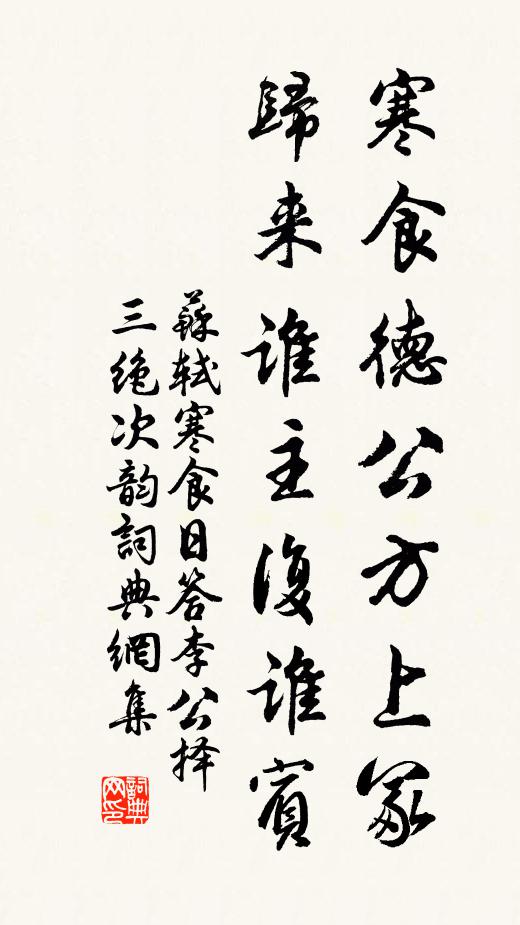 寒食德公方上冢
歸来誰主復誰賓
蘇軾寒食日答李公择
三绝次韵詞典網集
詞典网印